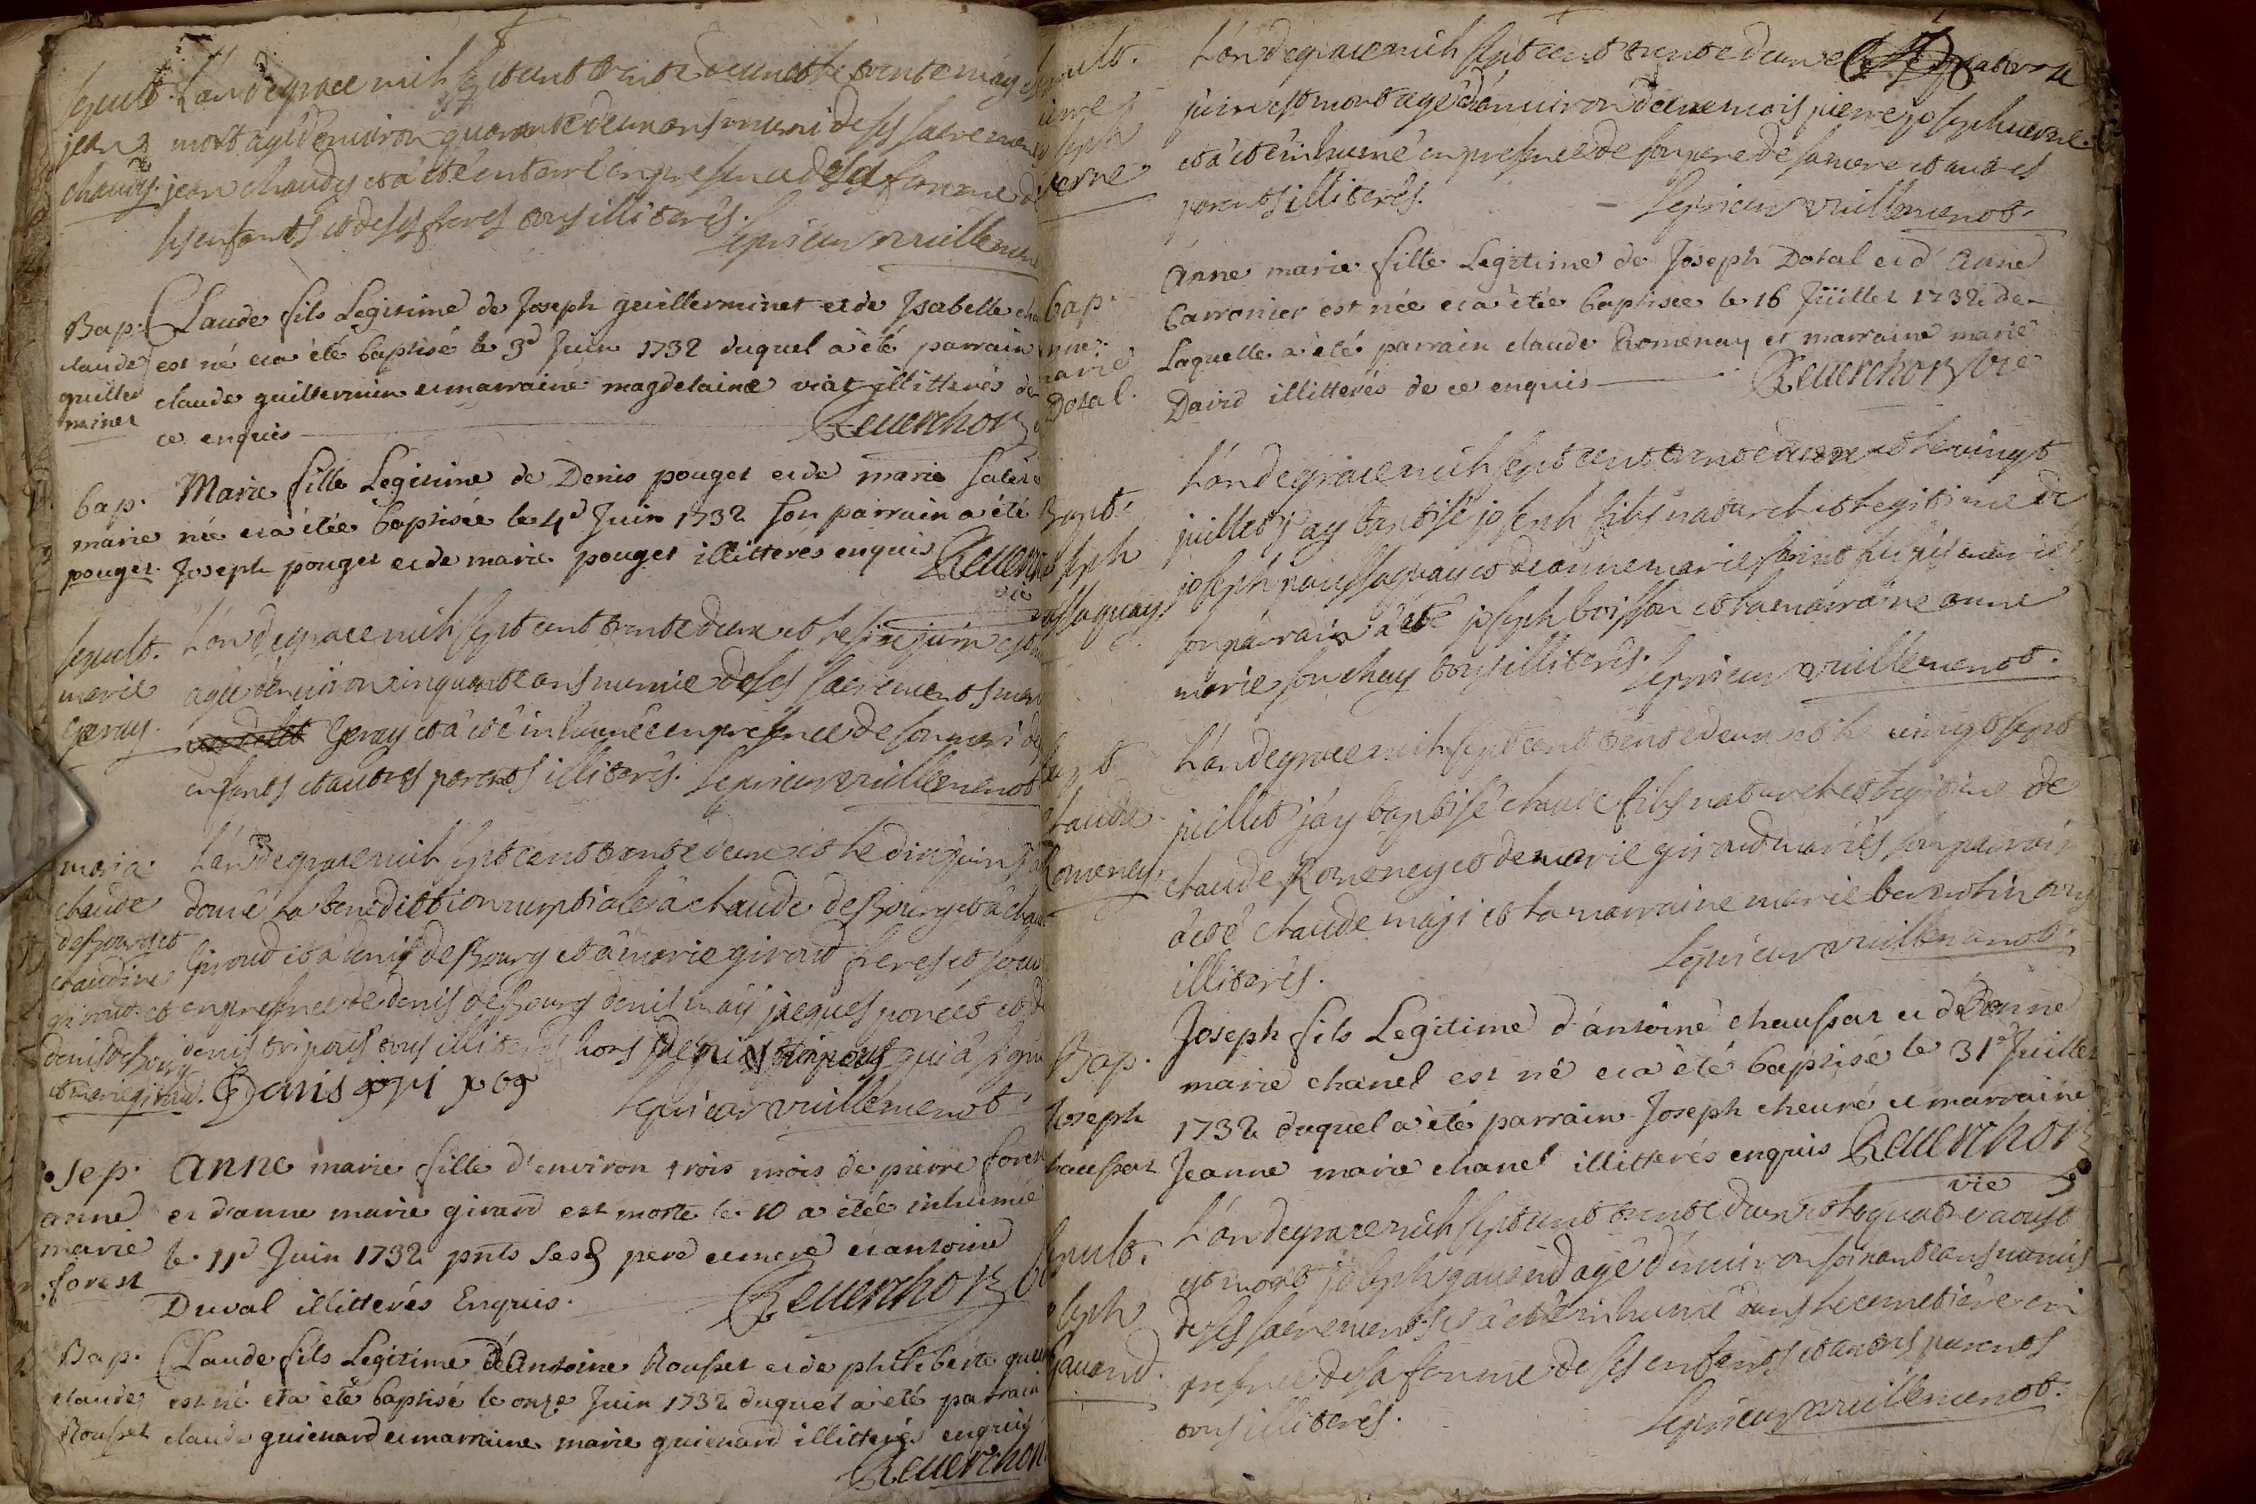 sepult. L'an de grace mil sept cent trente deux et le trente may est
jean mort agé d'environ quarante deux ans muni de ses sacremens
chaudy. jean chaudy et a été enterré en presence de sa femme de
ses enfants et de ses freres tous illiterés.
Leprieur vuillemenot
Bap. Claude fils Legitime de Joseph guillerminet et de Isabelle
claude est né et a été baptisé le 3d Juin 1732 duquel a été parrain
guiller claude guillermin et marraine magdelaine viat illitterés de
minet ce enquis Reuerchon
bap. Marie fille Legitime de Denis pouget et de marie
marie née et a étée baptisée le 4d Juin 1732 son parrain a été
pouget. Joseph pouget et de marie pouget illitterés enquis Reuerchon
vie
sepult. L'an de grace mil sept cent trente deux et le six juin est
marie agée d'environ cinquante ans munie de ses sacrements
geray. geray et a été inhumée en presence de son mari de
enfants et autres parents illiterés. Leprieur vuillemenot
maria. L'an de grace mil sept cent trente deux et le dix juin
claude donné la benediction nuptiale a claude debourg et a
debourg et giroud et a denis debourg et a marie giroud freres et
claudine en presence de denis debourg denis jacques poncet et
giroud et denis tripoz tous illiterés hors qui a signé
denis debourg Denis tripoz
et marie giroud. Leprieur vuillemenot
sep. anne marie fille d'environ trois mois de pierre forest
anne et d'anne marie girard est morte le 10 a étée inhumée
marie le 11d Juin 1732 pnts sesd pere et mere et antoine
forest Duval illitterés Enquis. Reuerchon
Bap. Claude fils Legitime d'Antoine Rousset et de philiberte
claude est né et a été baptisé le onze Juin 1732 duquel a été parrain
Rousset claude guienard et marraine marie guienard illitterés enquis
Reuerchon
L'an de grace mil sept cent trente deux quatorze
juin est mort agé d'environ deux mois pierre joseph verne
et a été inhumé en presence de son pere de sa mere et autres
verne. parents illiterés. Leprieur vuillemenot
bap. Anne marie fille Legitime de Joseph Dotal et d'Anne
Carronier est née et a étée baptisée le 16 Juillet 1732 de
marie laquelle a été parrain claude Romenay et marraine marie
Dotal. David illitterés de ce enquis Reuerchon vie
L'an de grace mil sept cent trente deux et le vingt
juillet j'ay baptisé joseph fils naturel et legitime de
joseph et de anne marie
son parrain a été joseph boisson et la marraine anne
marie souchay tous illiterés. Leprieur vuillemenot.
L'an de grace mil sept cent trente deux et le vingt sept
claude juillet j'ay baptisé claude fils naturel et legitime de
Romeney. claude Romeney et de marie giroud mariés son parrain
a été claude et la marraine marie
illiterés. Leprieur vuillemenot
Bap. Joseph fils Legitime d'antoine chaussat et de
Joseph marie chanel est né et a été baptisé le 31d Juillet
1732 duquel a été parrain Joseph cheuré et marraine
chaussat Jeanne marie chanel illitterés enquis Reuerchon
vie
sepult. L'an de grace mil sept cent trente deux et le quatre aoust
est mort joseph gauand agé d'environ soixante ans munis
joseph de ses sacrements et a été inhumé dans le cemetiere en
gauand. presence de sa femme de ses enfants et autres parents
tous illiterés. Leprieur vuillemenot.